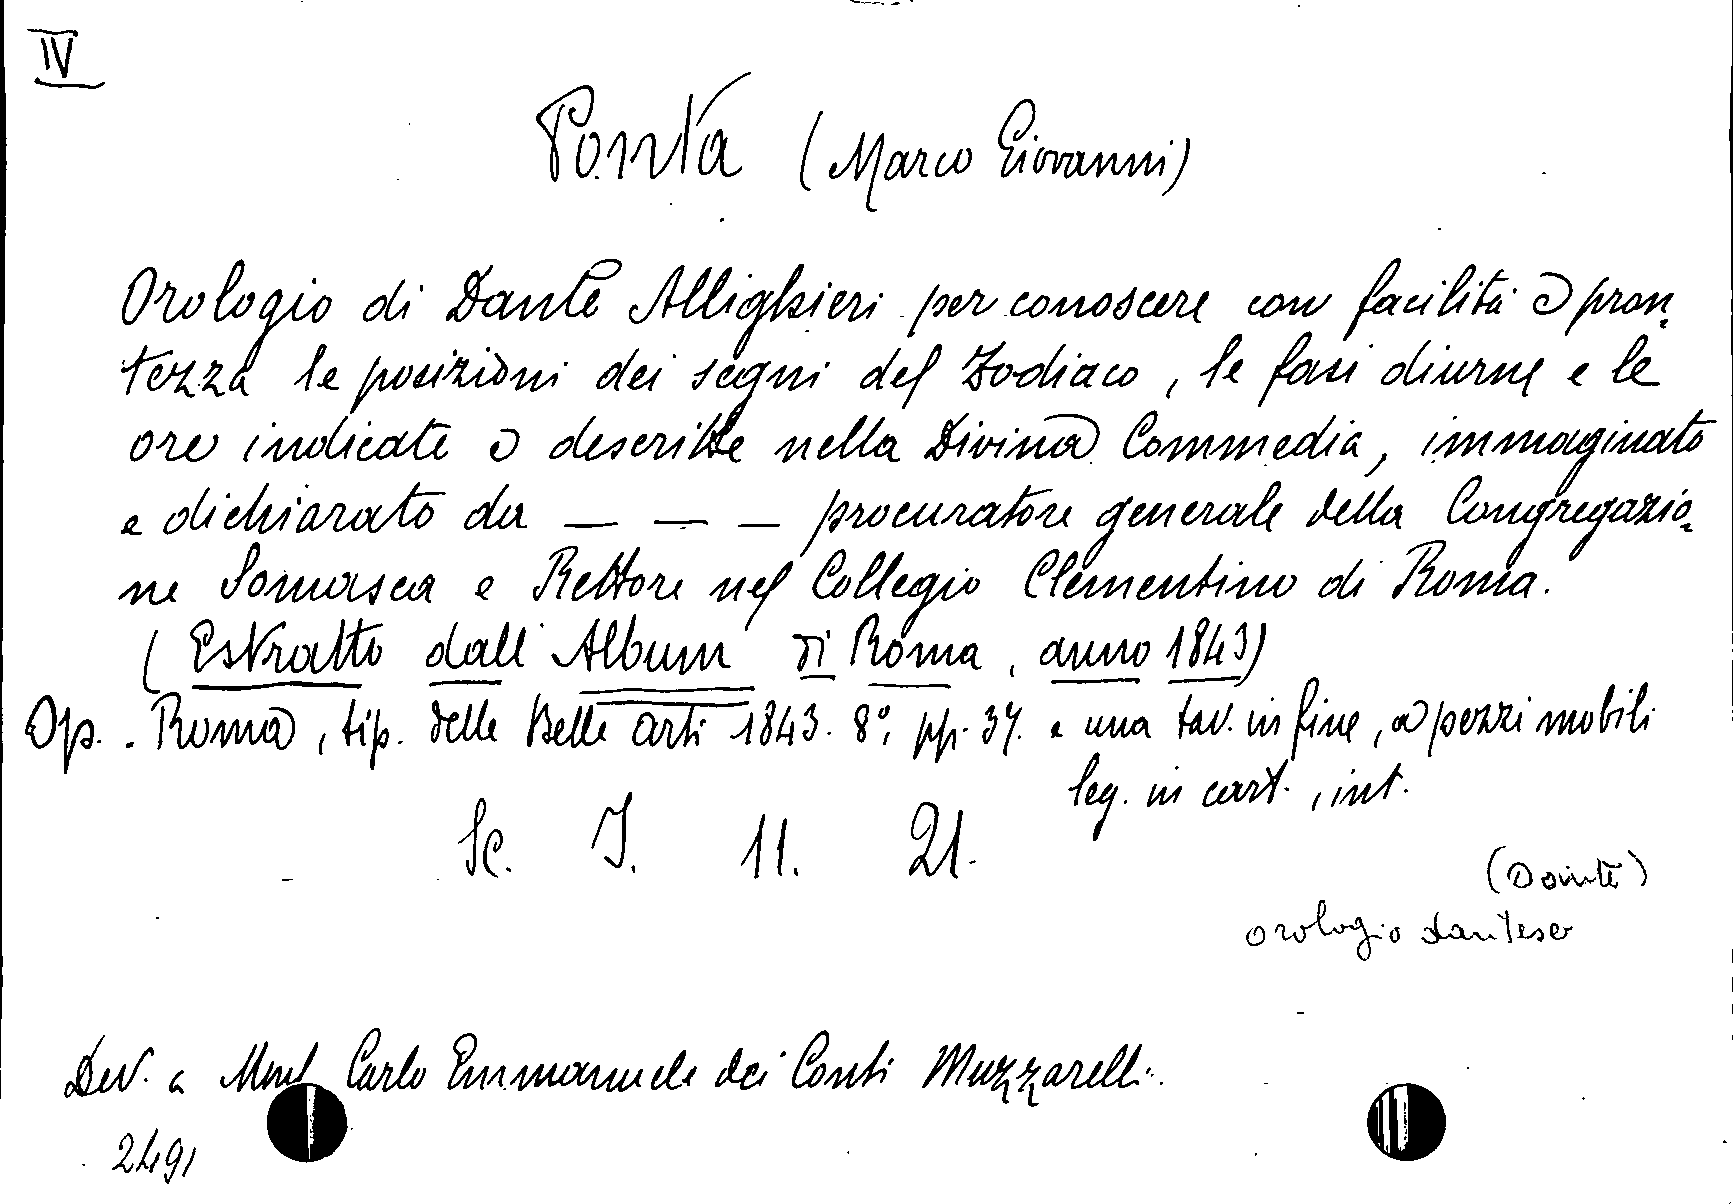 IV
Ponta (Marco Giovanni)
Orologio di Dante Allighieri per conoscere con facilità e pron-
tezza le posizioni dei segni del Zodiaco, le fasi diurne e le
ore indicate e descritte nella Divina Commedia, immaginato
e dichiarato da — — — procuratore generale della Congregazio-
ne Somasca e Rettore nel Collegio Clementino di Roma.
(Estratto dall'Album di Roma, anno 1843)
Op. . Roma, tip. delle Belle Arti 1843. 8°, pp. 37. e una tav. in fine, a pezzi mobili
leg. in cart., int.
Sc. I. 11. 21.
(Dante)
orologio dantesco
Ded. a Carlo Emmanuele dei Conti Muzzarelli.
2491